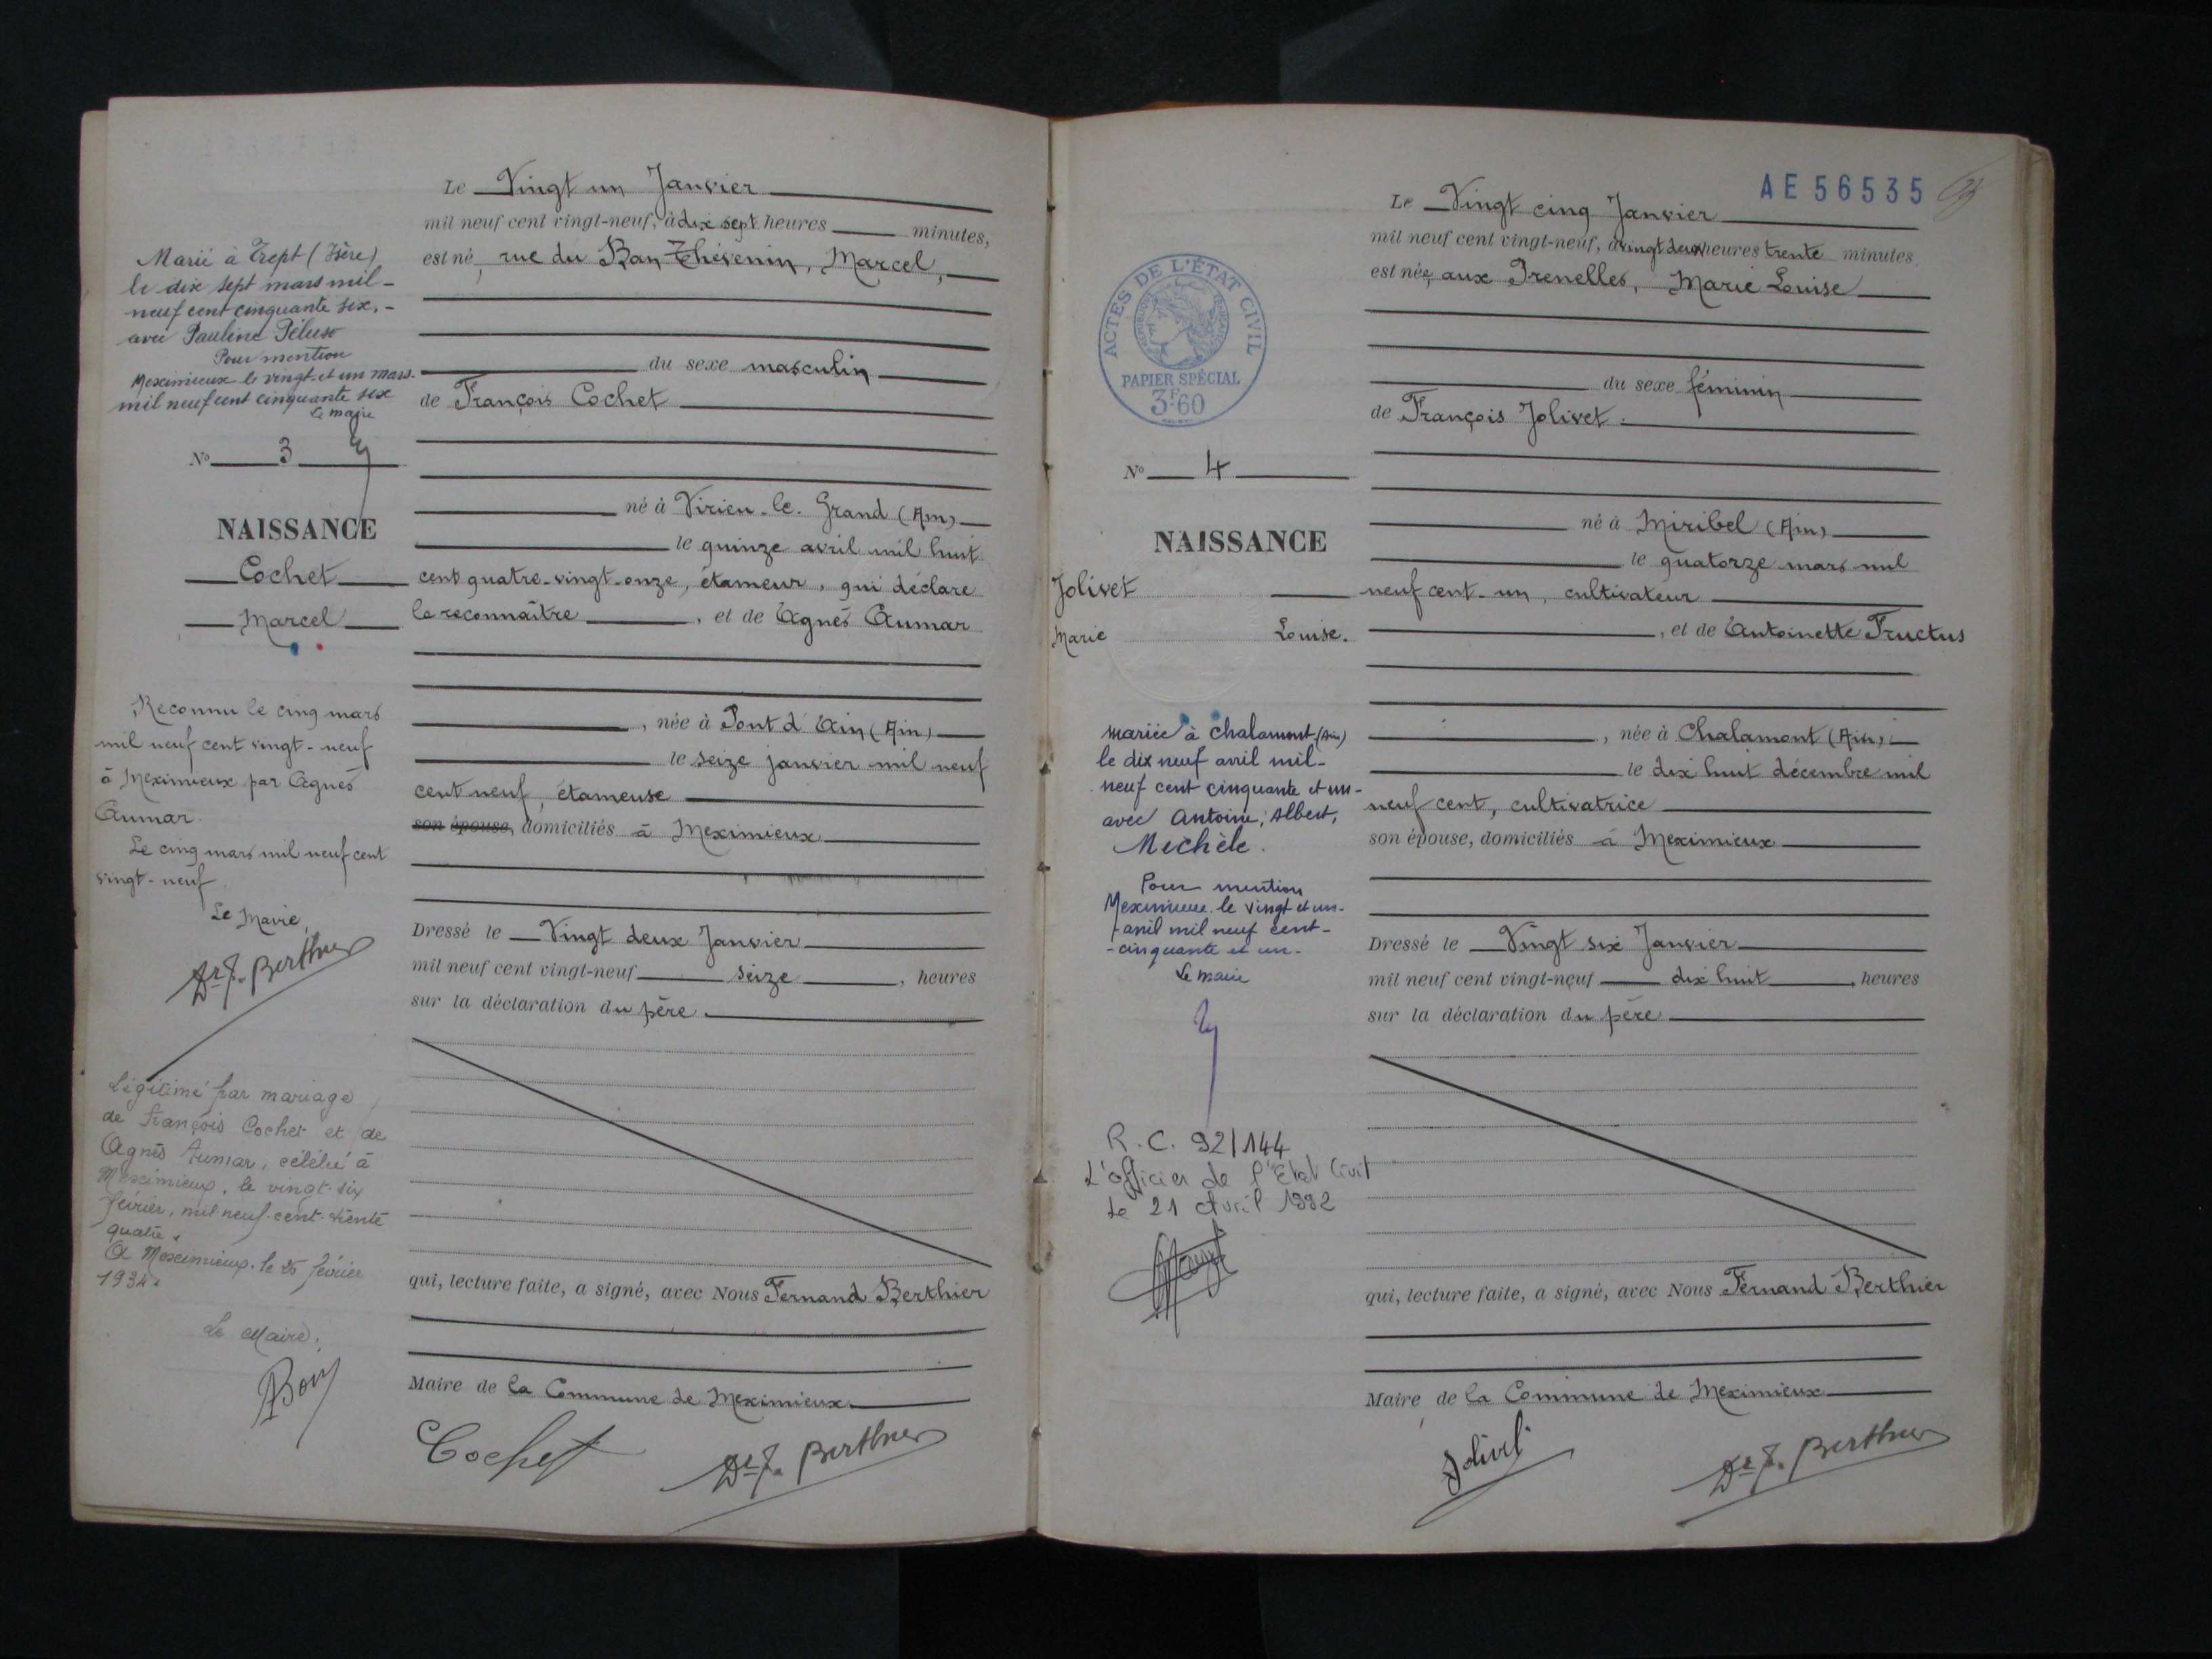 Marié à Trept (Isère)
le dix sept mars mil-
neuf cent cinquante six.-
avec Pauline Péluso
Pour mention
Meximieux le vingt et un mars
mil neuf cent cinquante six
Le maire
N° 3
NAISSANCE
Cochet
Marcel
Reconnu le cinq mars
mil neuf cent vingt-neuf
à Meximieux par Agnès
Aumar.
Le cinq mars mil neuf cent
vingt-neuf
Le Maire,
Dr F. Berthier
Légitimé par mariage
de François Cochet et de
Agnès Aumar, célébré à
Meximieux, le vingt-six
février, mil neuf-cent-trente
quatre.
A Meximieux, le 26 février
1934.
Le Maire,
Le Vingt un Janvier
mil neuf cent vingt-neuf, à dix sept heures minutes,
est né, rue du Ban Thévenin, Marcel,
du sexe masculin
de François Cochet
né à Virieu-le-Grand (Ain)
le quinze avril mil huit
cent quatre-vingt-onze, étameur, qui déclare
le reconnaître, et de Agnès Aumar
, née à Pont d'Ain (Ain)
le seize janvier mil neuf
cent neuf, étameuse
son épouse, domiciliés à Meximieux
Dressé le Vingt deux Janvier
mil neuf cent vingt-neuf seize, heures
sur la déclaration du père.
qui, lecture faite, a signé, avec Nous Fernand Berthier
Maire de la Commune de Meximieux
Cochet Dr F. Berthier
AE 56535
ACTES DE L'ÉTAT CIVIL
PAPIER SPÉCIAL
3F60
N° 4
NAISSANCE
Jolivet
Marie Louise.
mariée à Chalamont (Ain)
le dix neuf avril mil-
neuf cent cinquante et un-
avec Antoine, Albert,
Michèle.
Pour mention
Meximieux le vingt et un-
avril mil neuf cent-
-cinquante et un-
Le maire
R.C. 92/144
L'officier de l'Etat Civil
Le 21 Avril 1992
Le Vingt cinq Janvier
mil neuf cent vingt-neuf, à vingt deux heures trente minutes
est née, aux Prenelles, Marie Louise
du sexe féminin
de François Jolivet
né à Miribel (Ain)
le quatorze mars mil
neuf cent-un, cultivateur
, et de Antoinette Fructus
, née à Chalamont (Ain)
le dix huit décembre mil
neuf cent, cultivatrice
son épouse, domiciliés à Meximieux
Dressé le Vingt six Janvier
mil neuf cent vingt-neuf dix huit, heures
sur la déclaration du père
qui, lecture faite, a signé, avec Nous Fernand Berthier
Maire de la Commune de Meximieux
Jolivet Dr F. Berthier